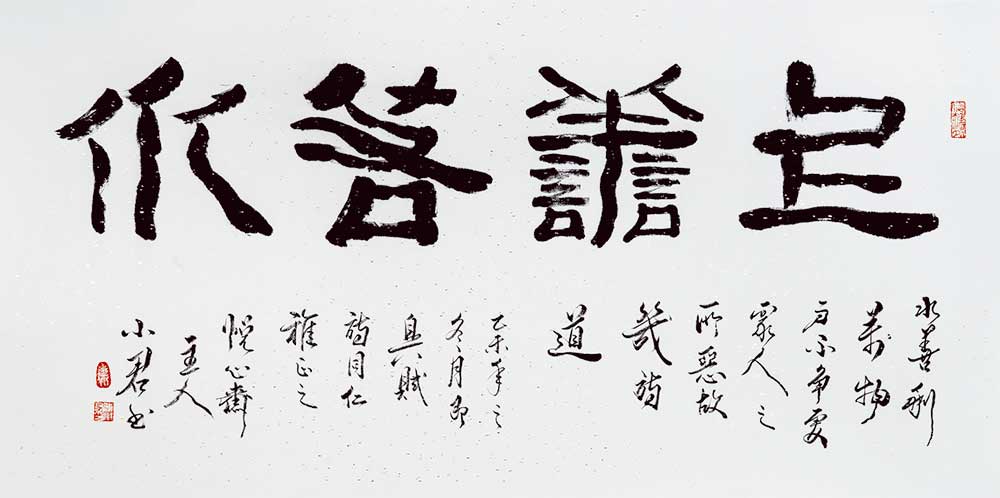 上譱若水
水善利
萬物
而不争處
眾人之
所惡故
幾於
道
乙未年之
冬月即
興賦
於同仁
雅正之
悦心齋
主人
小君书